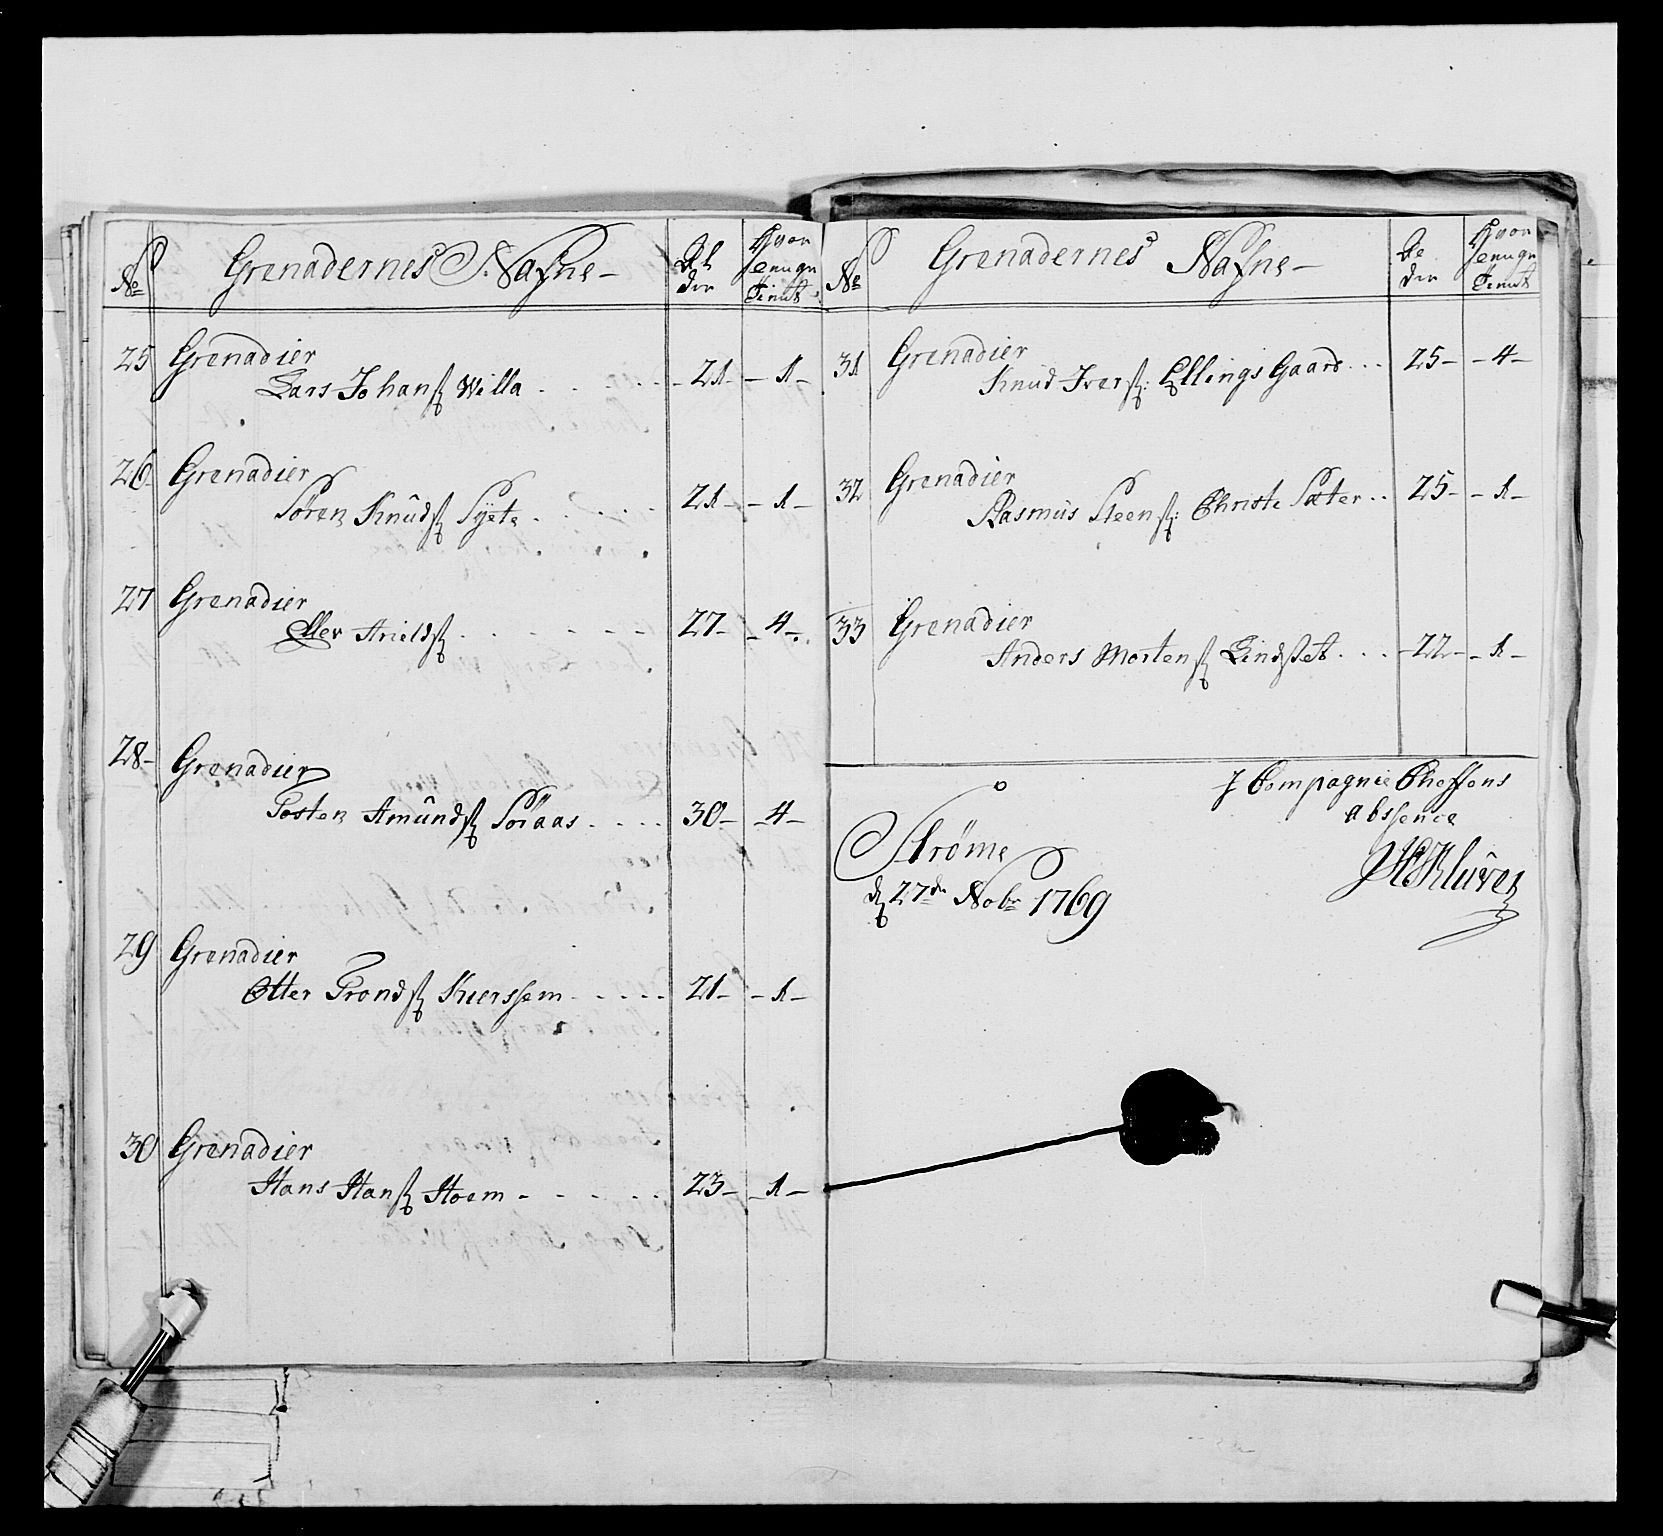 No Grenadernes Nafne — Al der Hvor lenuge Tient
25 Grenadier
Lars Johans Willa . . . . . 21 — 1 —
26 Grenadier
Sören Knûds Syete . . . . . 21 — 1 —
27 Grenadier
Eller Arields . . . . . . 27 — 4 —
28 Grenadier
Tosten Amûnds Söraas . . . . 30 — 4 —
29 Grenadier
Otter Tronds Kierssem . . . . . 21 — 1 —
30 Grenadier
Hans Hans Hoem . . . . . 23 — 1 —
No Grenadernes Nafne — Al der Hvor lenuge Tient
31 Grenadier
Knud Ivers: Ellings Gaard . . . 25 — 4 —
32 Grenadier
Rasmus Steens: Christe Sæter . . 25 — 1 —
33 Grenadier
Anders Mortens Lindstet . . . 22 — 1 —
J Compagnie Cheffens
abssence
Ströme
d 27de Nobr 1769
Klûver